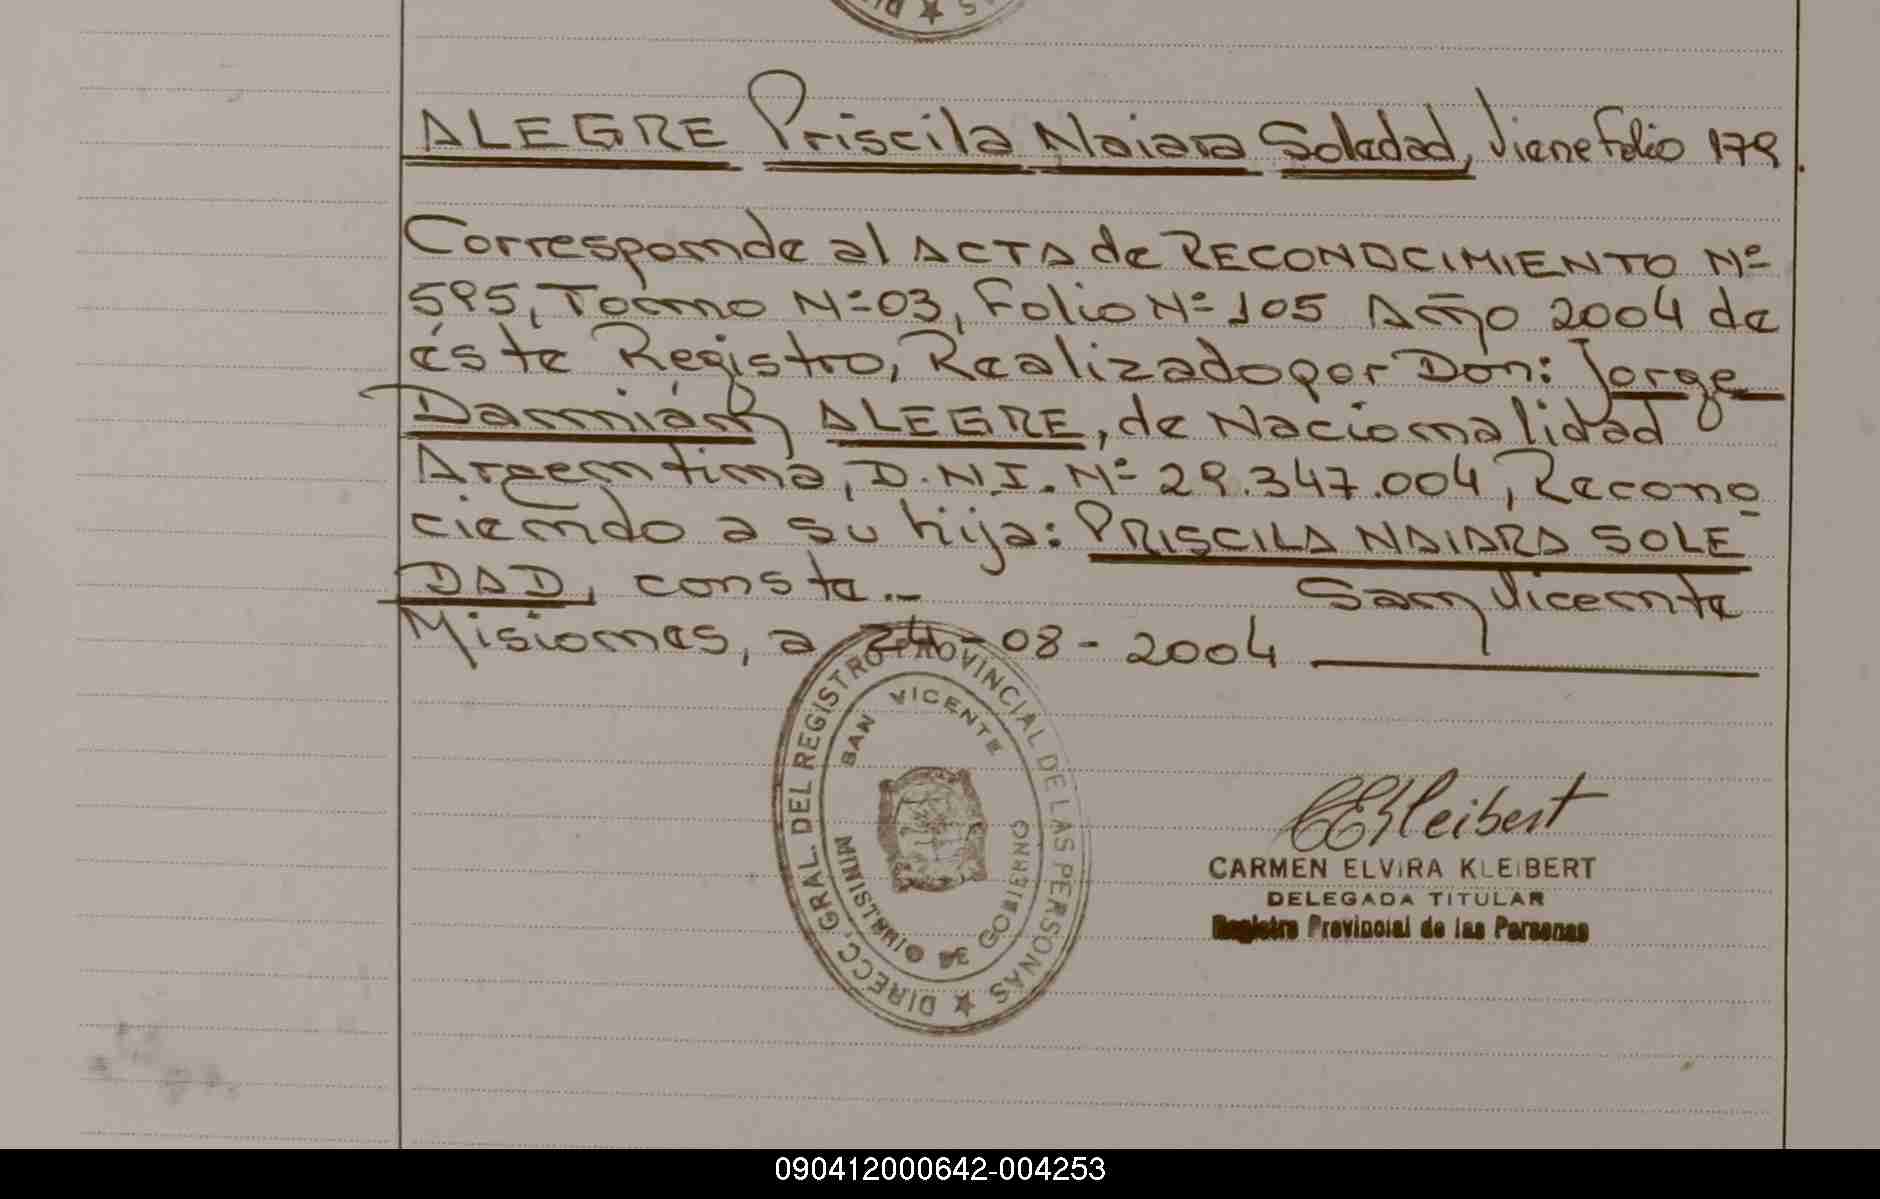 ALEGRE Priscila Naiara Soledad, Viene folio 179.
Corresponde al ACTA de RECONOCIMIENTO Nº
595, Tomo Nº 03, Folio Nº 105 Año 2004 de
éste Registro, Realizado por Don: Jorge
Damián ALEGRE, de Nacionalidad
Argentina, D.N.I. Nº 29.347.004, Recono
ciendo a su hija: PRISCILA NAIARA SOLE
DAD, consta.- San Vicente
Misiones, a 24-08-2004
DIRECC. GRAL. DEL REGISTRO PROVINCIAL DE LAS PERSONAS
SAN VICENTE
MINISTERIO DE GOBIERNO
CEKleibert
CARMEN ELVIRA KLEIBERT
DELEGADA TITULAR
Registro Provincial de las Personas
090412000642-004253